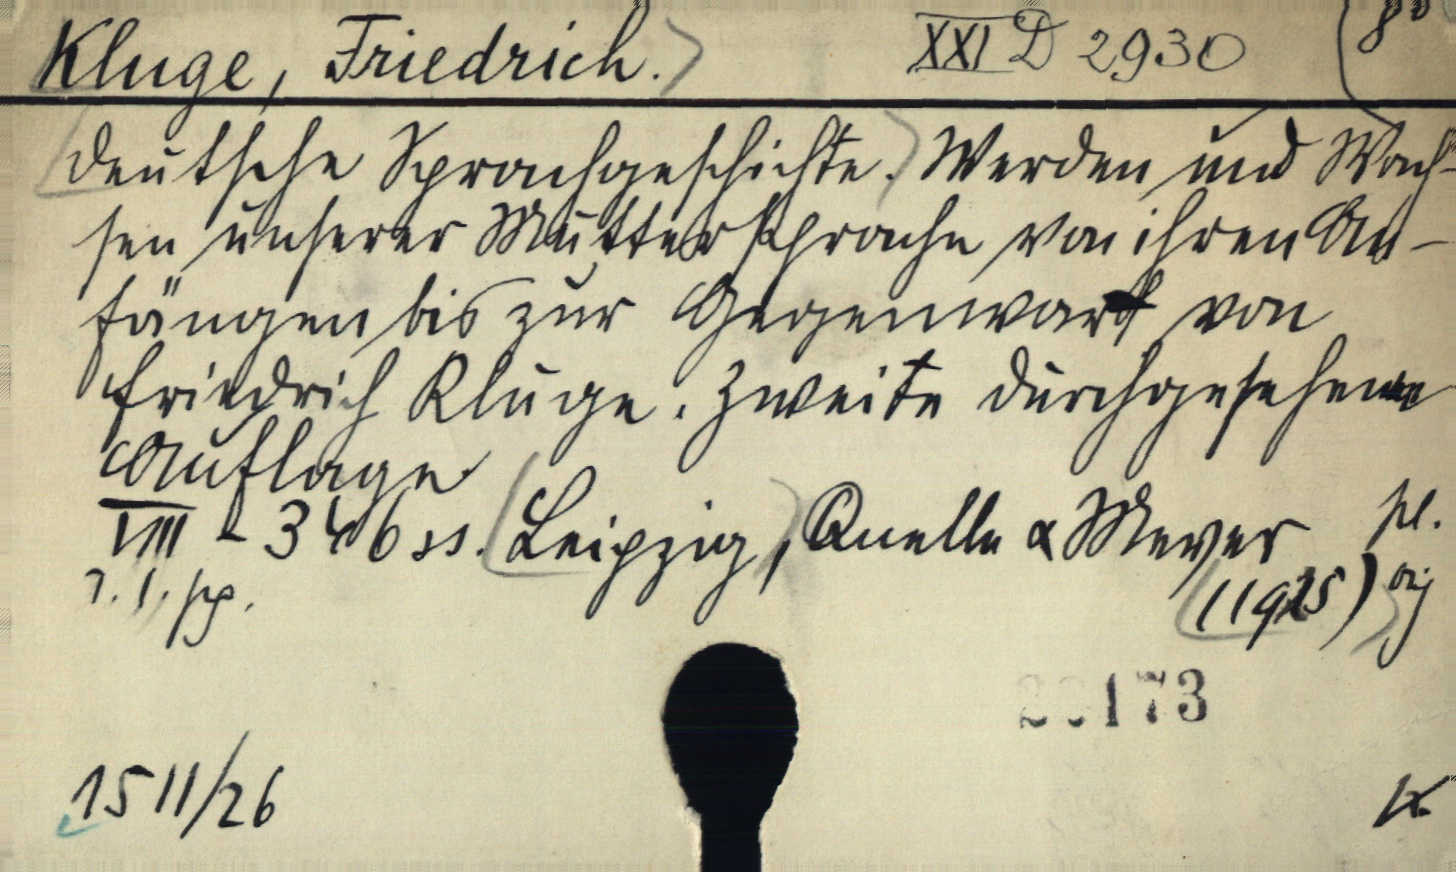 Kluge, Friedrich. XXI D 2930 8°
Deutsche Sprachgeschichte. Werden und Wach-
sen unserer Muttersprache von ihren An-
fängen bis zur Gegenwart von
Friedrich Kluge. Zweite durchgesehene
Auflage
VIII - 346 ss. Leipzig, Quelle & Meyer pl.
(1925) orig
173
15 11/26